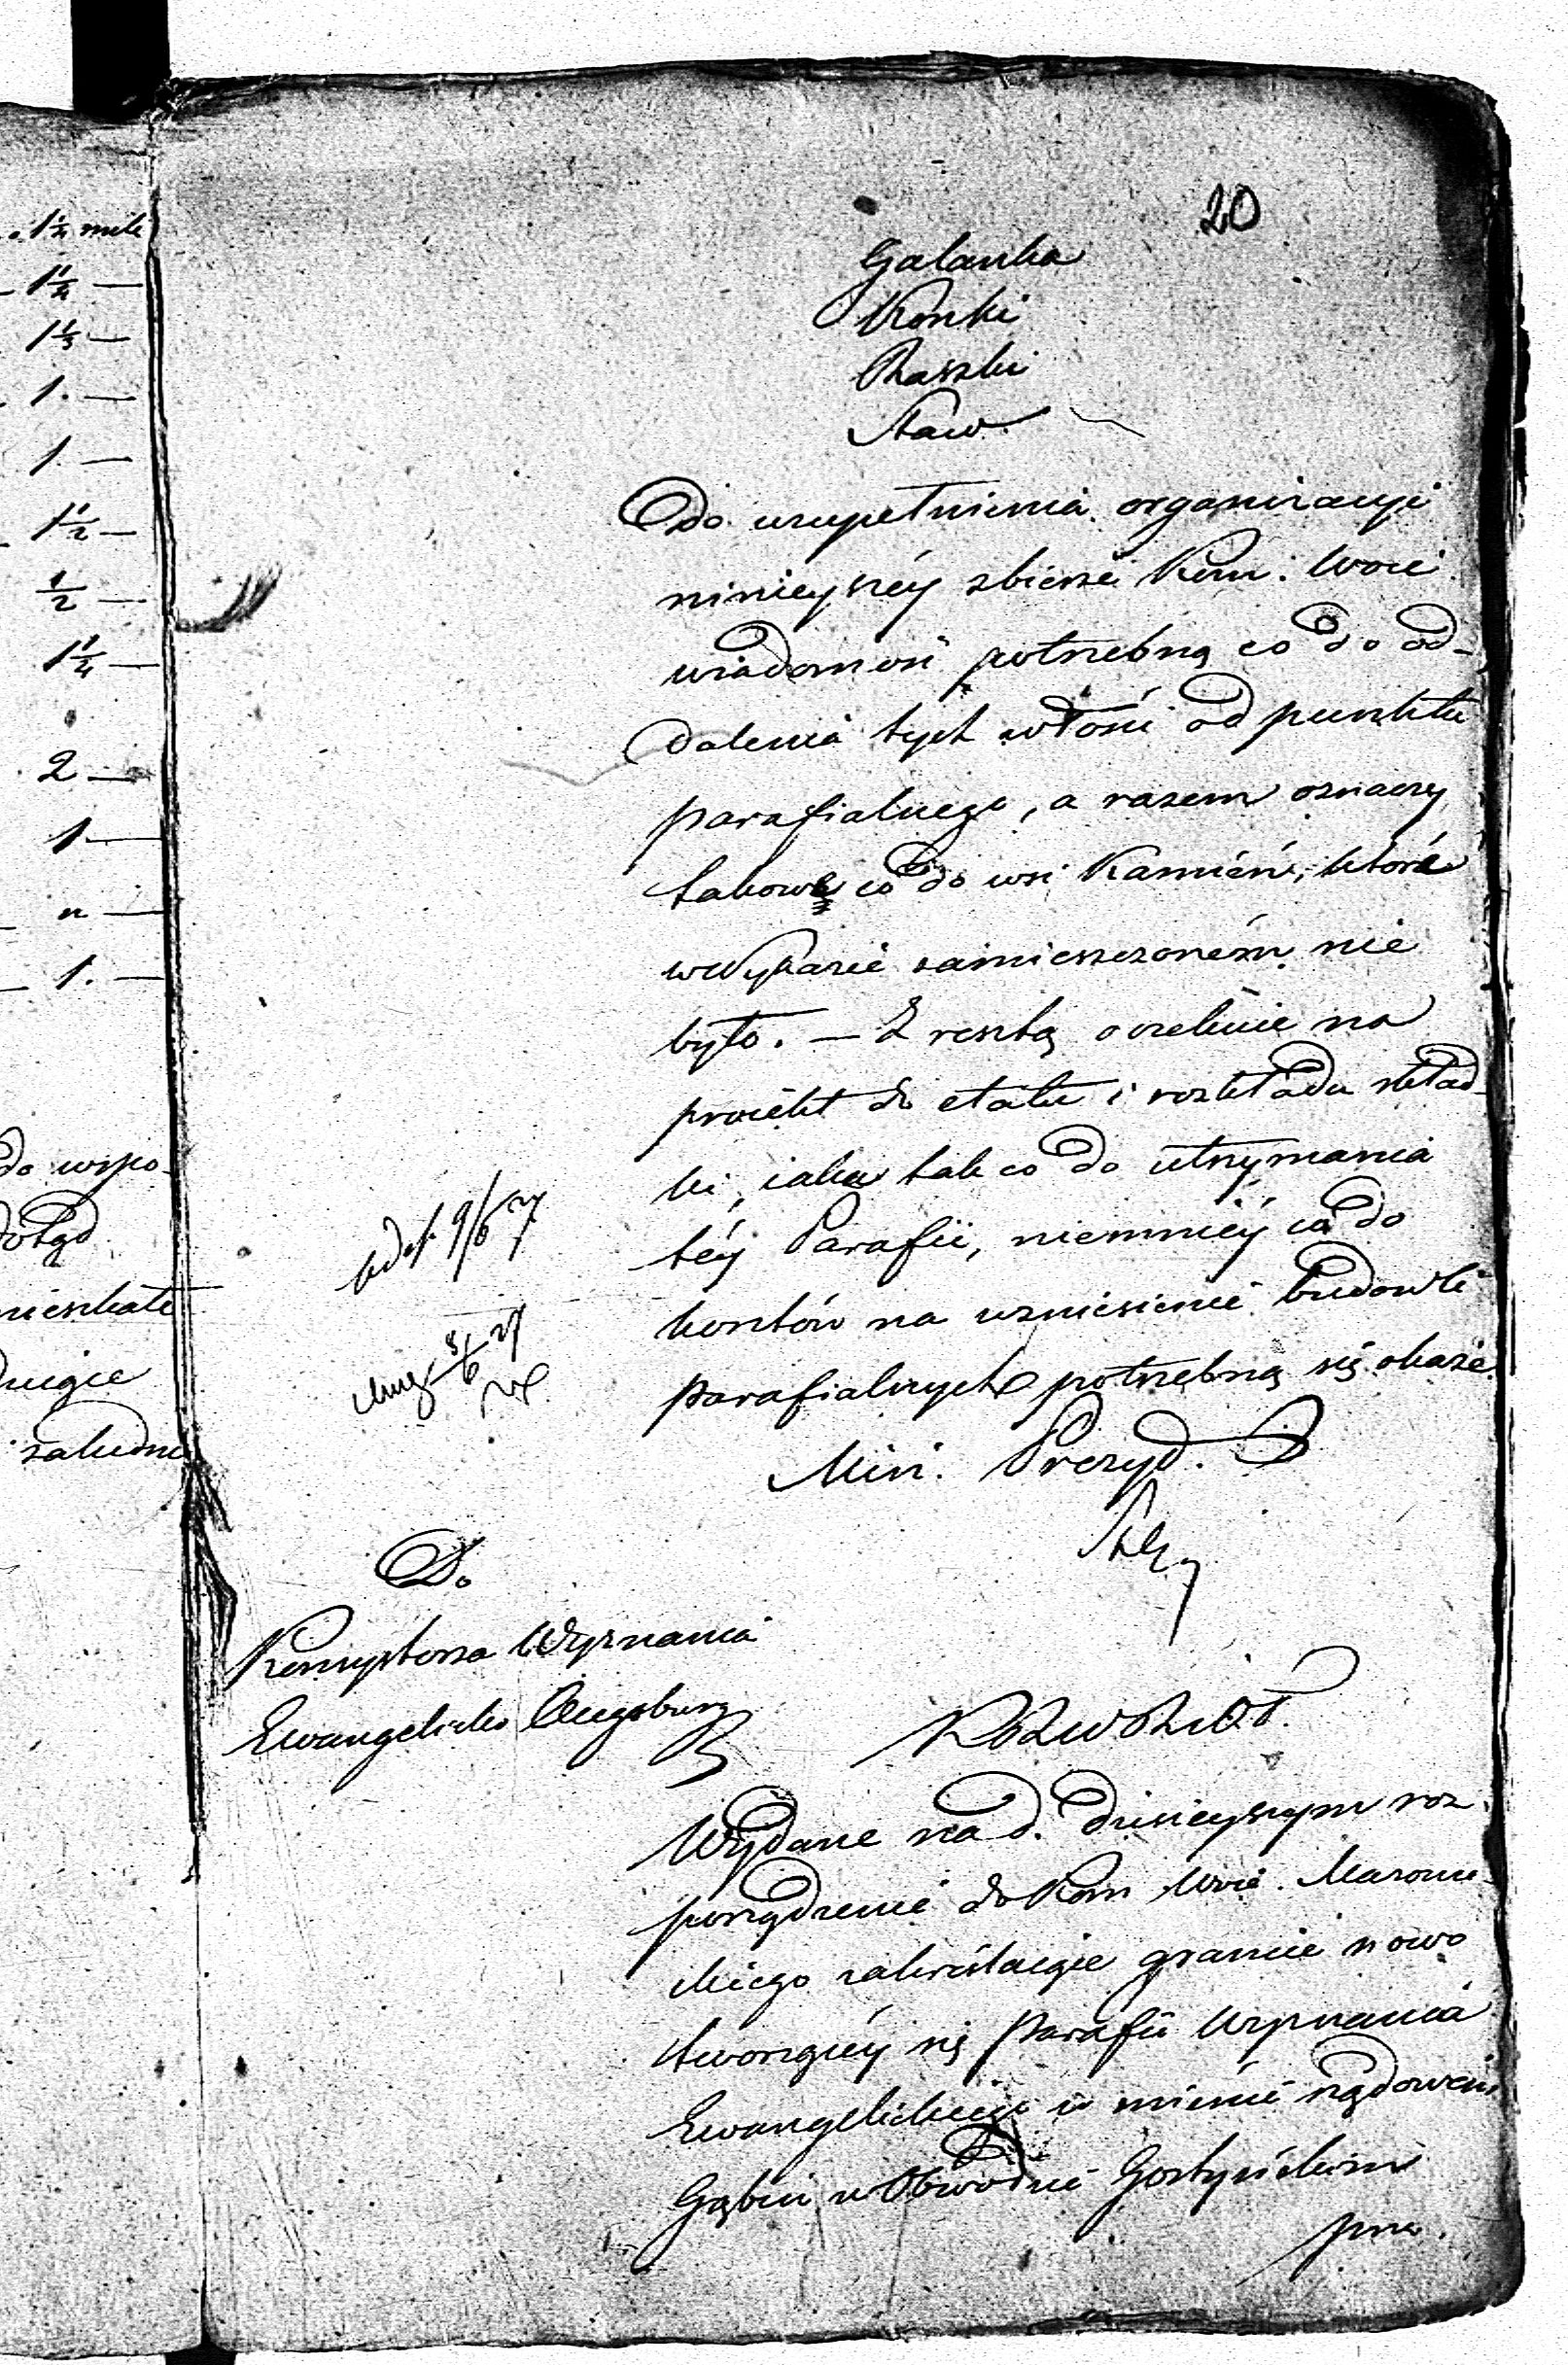 1½ mile
1¼ —
1⅓ —
1. —
1. —
1½ —
½ —
1¼ —
2 —
1 —
" —
1. —
do wspo-
dotąd
mieszkałe
zaludnie
20
Galanka
Konki
Raszki
Staw.
Do uzupełnienia organizacyi
ninieyszéy zbierze Kom: Woie:
wiadomość potrzebną co do od-
dalenia tych włosci od punktu
parafialnego, a razem oznaczy
takowę co do wsi Kamień, która
w wykazie zamieszczoném nie
było. — Z resztą oczekuie na
proiekt do etatu i rozkładu skład-
ki, iaka tak co do utrzymania
téy Parafii, niemniéy co do
kosztów na wzniesienie budowli
parafialnych potrzebną się okaże.
Min. Prezyd.
9/6 27
8/6 27
Do
Konsystorza Wyznania
Ewangelicko Augsburg
Rozwozził.
Wydane na d. dzisieyszym roz-
porządzenie do Kom Woie. Mazowie-
ckiego zakréslaiące granice nowo
tworzącéy się Parafii Wyznania
Ewangelickiego w mieście rządowém
Gąbin w Obwodzie Gostyńskim
prze.